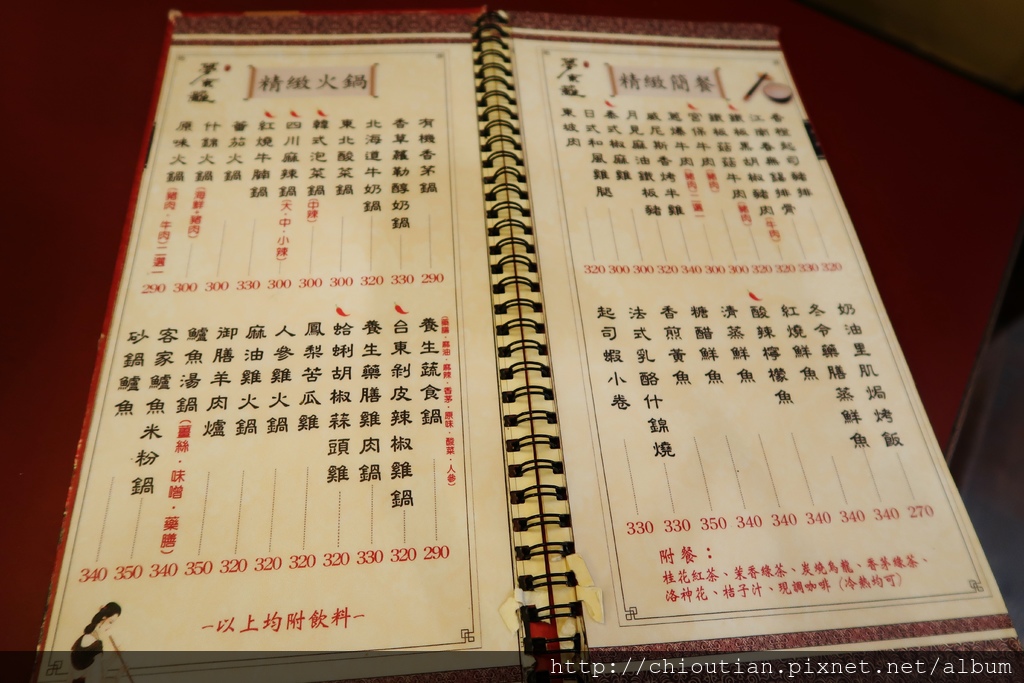 精緻火鍋
有機香茅鍋 290
香草蘿勒醇奶鍋 330
北海道牛奶鍋 320
東北酸菜鍋 300
韓式泡菜鍋(中辣) 300
四川麻辣鍋(大·中·小辣) 300
紅燒牛腩鍋 330
蕃茄火鍋 300
什錦火鍋(海鮮·豬肉) 300
原味火鍋(豬肉·牛肉)二選一 290
養生蔬食鍋 290
台東剝皮辣椒雞鍋 320
養生藥膳雞肉鍋 330
蛤蜊胡椒蒜頭雞 320
鳳梨苦瓜雞 320
人參雞火鍋 320
麻油雞火鍋 320
御膳羊肉爐 350
鱸魚湯鍋(薑絲·味噌·藥膳) 340
客家鱸魚米粉鍋 350
砂鍋鱸魚 340
–以上均附飲料–
精緻簡餐
香橙起司豬排 320
江南春無錫排骨 330
鐵板黑胡椒豬肉(牛肉) 320
鐵板菇菇牛肉(豬肉) 320
宮保牛肉(豬肉) 300
蔥爆牛肉(豬肉)二選一 300
威尼斯香烤半雞 340
月見麻油鐵板豬 320
泰式椒麻雞 300
日式和風雞腿 300
東坡肉 320
奶油里肌焗烤飯 270
冬令藥膳蒸鮮魚 340
紅燒鮮魚 340
酸辣檸檬魚 340
清蒸鮮魚 340
糖醋鮮魚 340
香煎黃魚 350
法式乳酪什錦燒 330
起司蝦小卷 330
附餐：
桂花紅茶、茉香綠茶、炭燒烏龍、香茅綠茶、
洛神花、桔子汁、現調咖啡(冷熱均可)
http://chioutian.pixnet.net/album